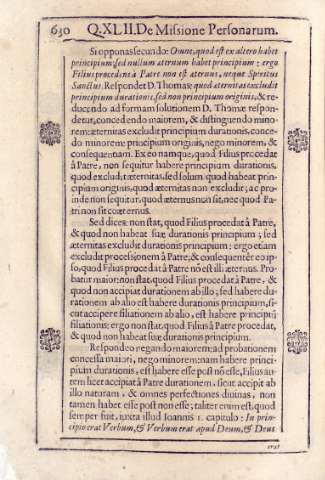 630 Q.XLII. De Missione Personarum.
Si opponas secundo: Omne, quod est ex altero habet
principium; sed nullum æternum habet principium; ergo
Filius procedens à Patre non est æternus, neque Spiritus
Sanctus. Respondet D. Thomas: quod æternitas excludit
principium durationis, sed non principium originis, & re-
ducendo ad formam solutionem D. Thomæ respon-
detur, concedendo maiorem, & distinguendo mino-
rem: æternitas excludit principium durationis, conce-
do minorem: principium originis, nego minorem, &
consequentiam. Ex eo namque, quod Filius procedat
à Patre, non sequitur habere principium durationis,
quod excludit æternitas, sed solum quod habeat prin-
cipium originis, quod æternitas non excludit; ac pro-
inde non sequitur, quod æternus non sit, nec quod Pa-
tri non sit coæternus.
Sed dices: non stat, quod Filius procedat à Patre,
& quod non habeat suæ durationis principium; sed
æternitas excludit durationis principium: ergo etiam
excludit processionem à Patre, & consequentèr eo ip-
so, quod Filius procedat à Patre nõ est illi æternus. Pro-
batur maior: non stat, quod Filius procedat à Patre, &
quod non accipiat durationem ab illo; sed habere du-
rationem ab alio est habere durationis principium, si-
cut accipere filiationem ab alio, est habere principiũ
filiationis; ergo non stat, quod Filius procedat à Patre,
& quod non habeat suæ durationis principium.
Respondeo negando maiorem; ad probationem
concessa maiori, nego minorem: nam habere princi-
pium durationis, est habere esse post nõ esse, Filius au-
tem licet accipiat à Patre durationem, sicut accipit ab
illo naturam, & omnes perfectiones divinas, non
tamen habet esse post non esse; taliter enim est, quod
semper fuit, iuxta illud Ioannis 1. capitulo: In prin-
cipio erat Verbum, & Verbum erat apud Deum, & Deus